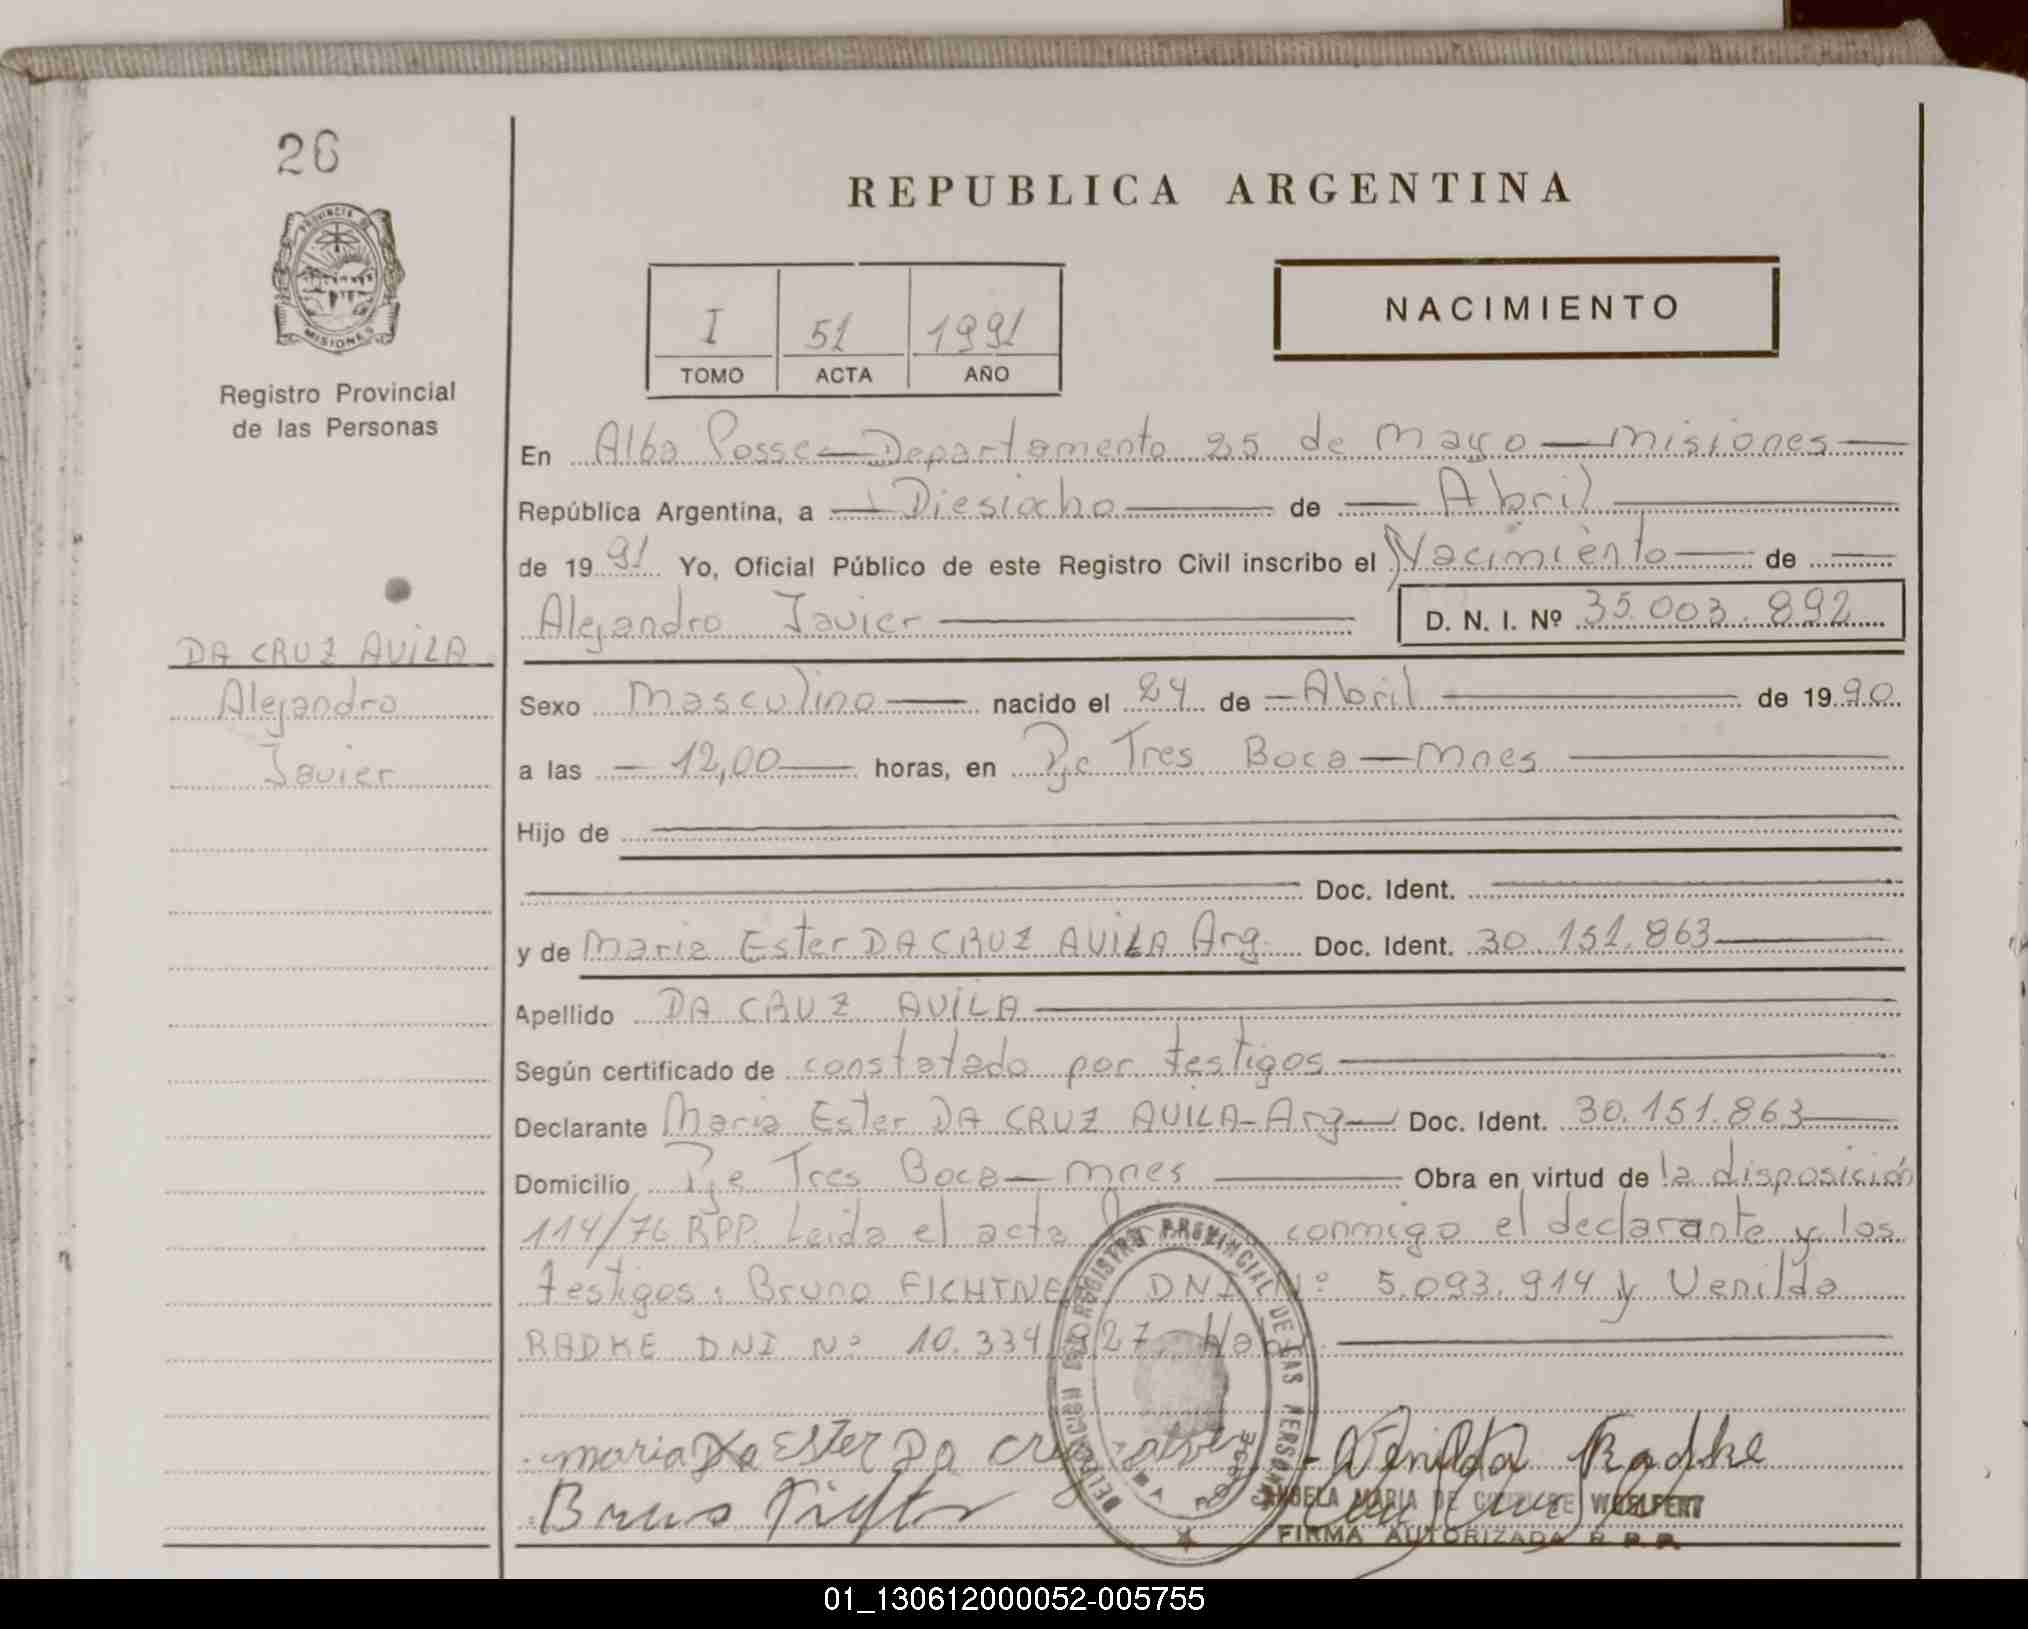 26
PROVINCIA DE
MISIONES
Registro Provincial
de las Personas
DA CRUZ AVILA
Alejandro
Javier
REPUBLICA ARGENTINA
NACIMIENTO
I 51 1991
TOMO ACTA AÑO
En Alba Posse — Departamento 25 de Mayo — Misiones —
República Argentina, a — Diesiocho — de — Abril —
de 1991 Yo, Oficial Público de este Registro Civil inscribo el Nacimiento — de —
Alejandro Javier — D. N. I. Nº 35.003.892
Sexo Masculino — nacido el 24 de — Abril — de 1990
a las — 12,00 — horas, en Pje Tres Boca — Mnes —
Hijo de —
— Doc. Ident. —
y de Maria Ester DA CRUZ AVILA Arg. Doc. Ident. 30.151.863 —
Apellido DA CRUZ AVILA —
Según certificado de constatado por testigos —
Declarante Maria Ester DA CRUZ AVILA - Arg — Doc. Ident. 30.151.863 —
Domicilio Pje Tres Boca — Mnes — Obra en virtud de la disposición
114/76 RPP. Leida el acta conmigo el declarante y los
testigos: Bruno FICHTNER DNI Nº 5.093.914 y Venilda
RADKE DNI Nº 10.334. 27. —
REGISTRO PROVINCIAL DE LAS PERSONAS
maria Da Ester Da cruz
Wenilda Radke
Bruno
ANGELA MARIA DE WOELFERT
FIRMA AUTORIZADA R. P. P.
01_130612000052-005755